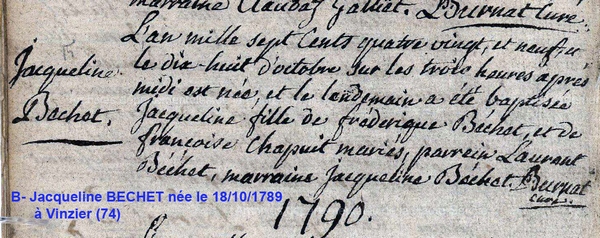 marraine Claudaz Galliet. Burnat Curé
L'an mille sept Cents quatre vingt, et neuf, et
le dix huit d'octobre sur les trois heures après
midi est née, et le lendemain a été baptisée
Jacqueline fille de fréderique Béchet, et de
françoise Chapuit mariés, parrein Laurent
Béchet, marraine Jacqueline Bechet. Burnat
curé.
Jacqueline
Bechet.
B- Jacqueline BECHET née le 18/10/1789
à Vinzier (74)
1790.